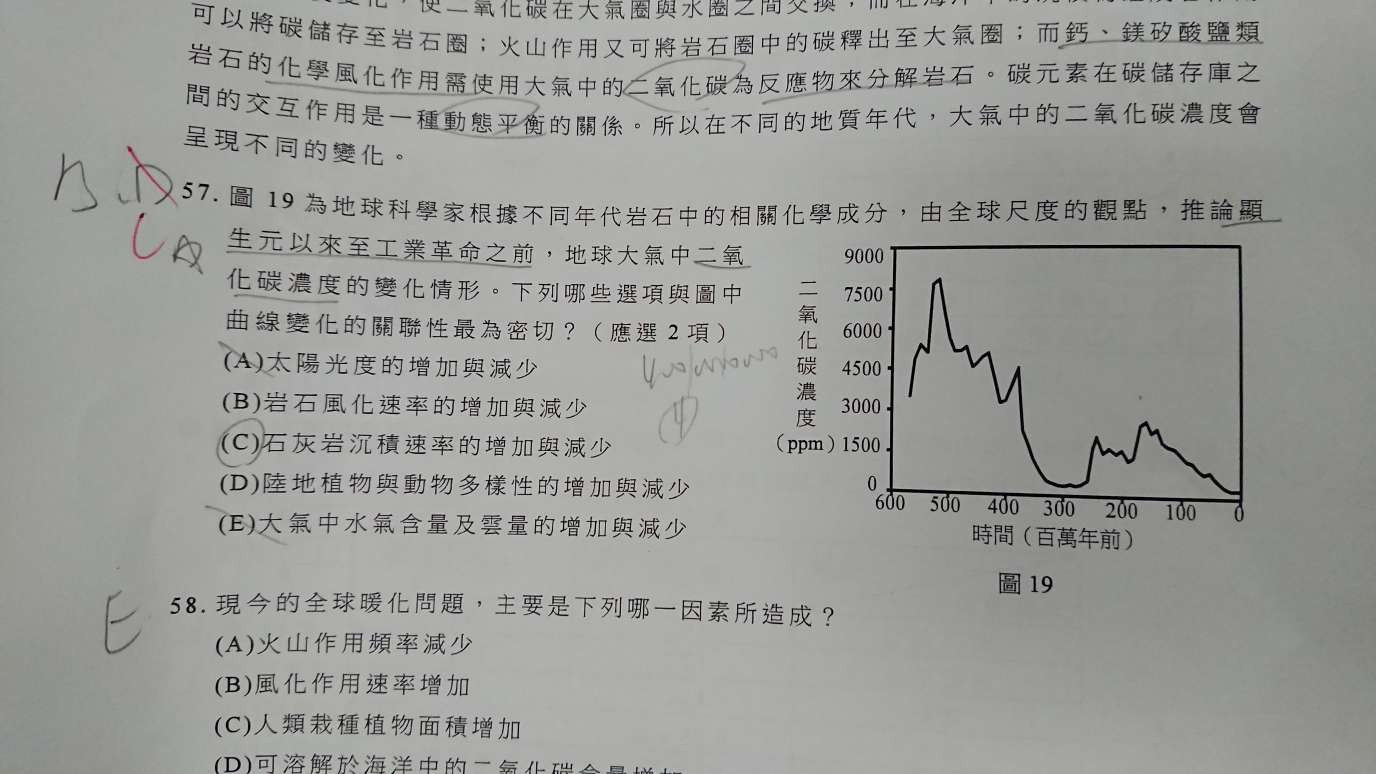 使二氧化碳在大氣圈與水圈之間交換
可以將碳儲存至岩石圈；火山作用又可將岩石圈中的碳釋出至大氣圈；而鈣、鎂矽酸鹽類
岩石的化學風化作用需使用大氣中的二氧化碳為反應物來分解岩石。碳元素在碳儲存庫之
間的交互作用是一種動態平衡的關係。所以在不同的地質年代，大氣中的二氧化碳濃度會
呈現不同的變化。
57. 圖 19 為地球科學家根據不同年代岩石中的相關化學成分，由全球尺度的觀點，推論顯
生元以來至工業革命之前，地球大氣中二氧
化碳濃度的變化情形。下列哪些選項與圖中
曲線變化的關聯性最為密切？（應選 2 項）
(A)太陽光度的增加與減少
(B)岩石風化速率的增加與減少
(C)石灰岩沉積速率的增加與減少
(D)陸地植物與動物多樣性的增加與減少
(E)大氣中水氣含量及雲量的增加與減少
二氧化碳濃度
（ppm）
9000
7500
6000
4500
3000
1500
0
600 500 400 300 200 100 0
時間（百萬年前）
圖 19
E
58. 現今的全球暖化問題，主要是下列哪一因素所造成？
(A)火山作用頻率減少
(B)風化作用速率增加
(C)人類栽種植物面積增加
(D)可溶解於海洋中的二氧化碳含量增加